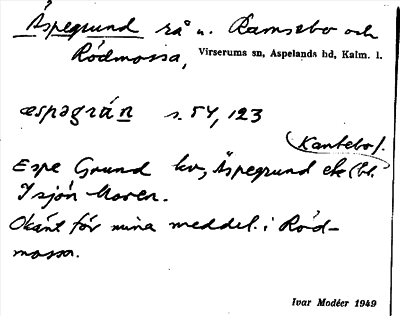 Äspegrund rå u. Ramsebo och
Rödmossa, Virserums sn, Aspelands hd, Kalm. l.
æspəgrán s. 54, 123
Kantebo).
Espe Grund kv, Äspegrund ek (bl.
I sjön Moren.
Okänt för mina meddel. i Röd-
mossa.
Ivar Modéer 1949